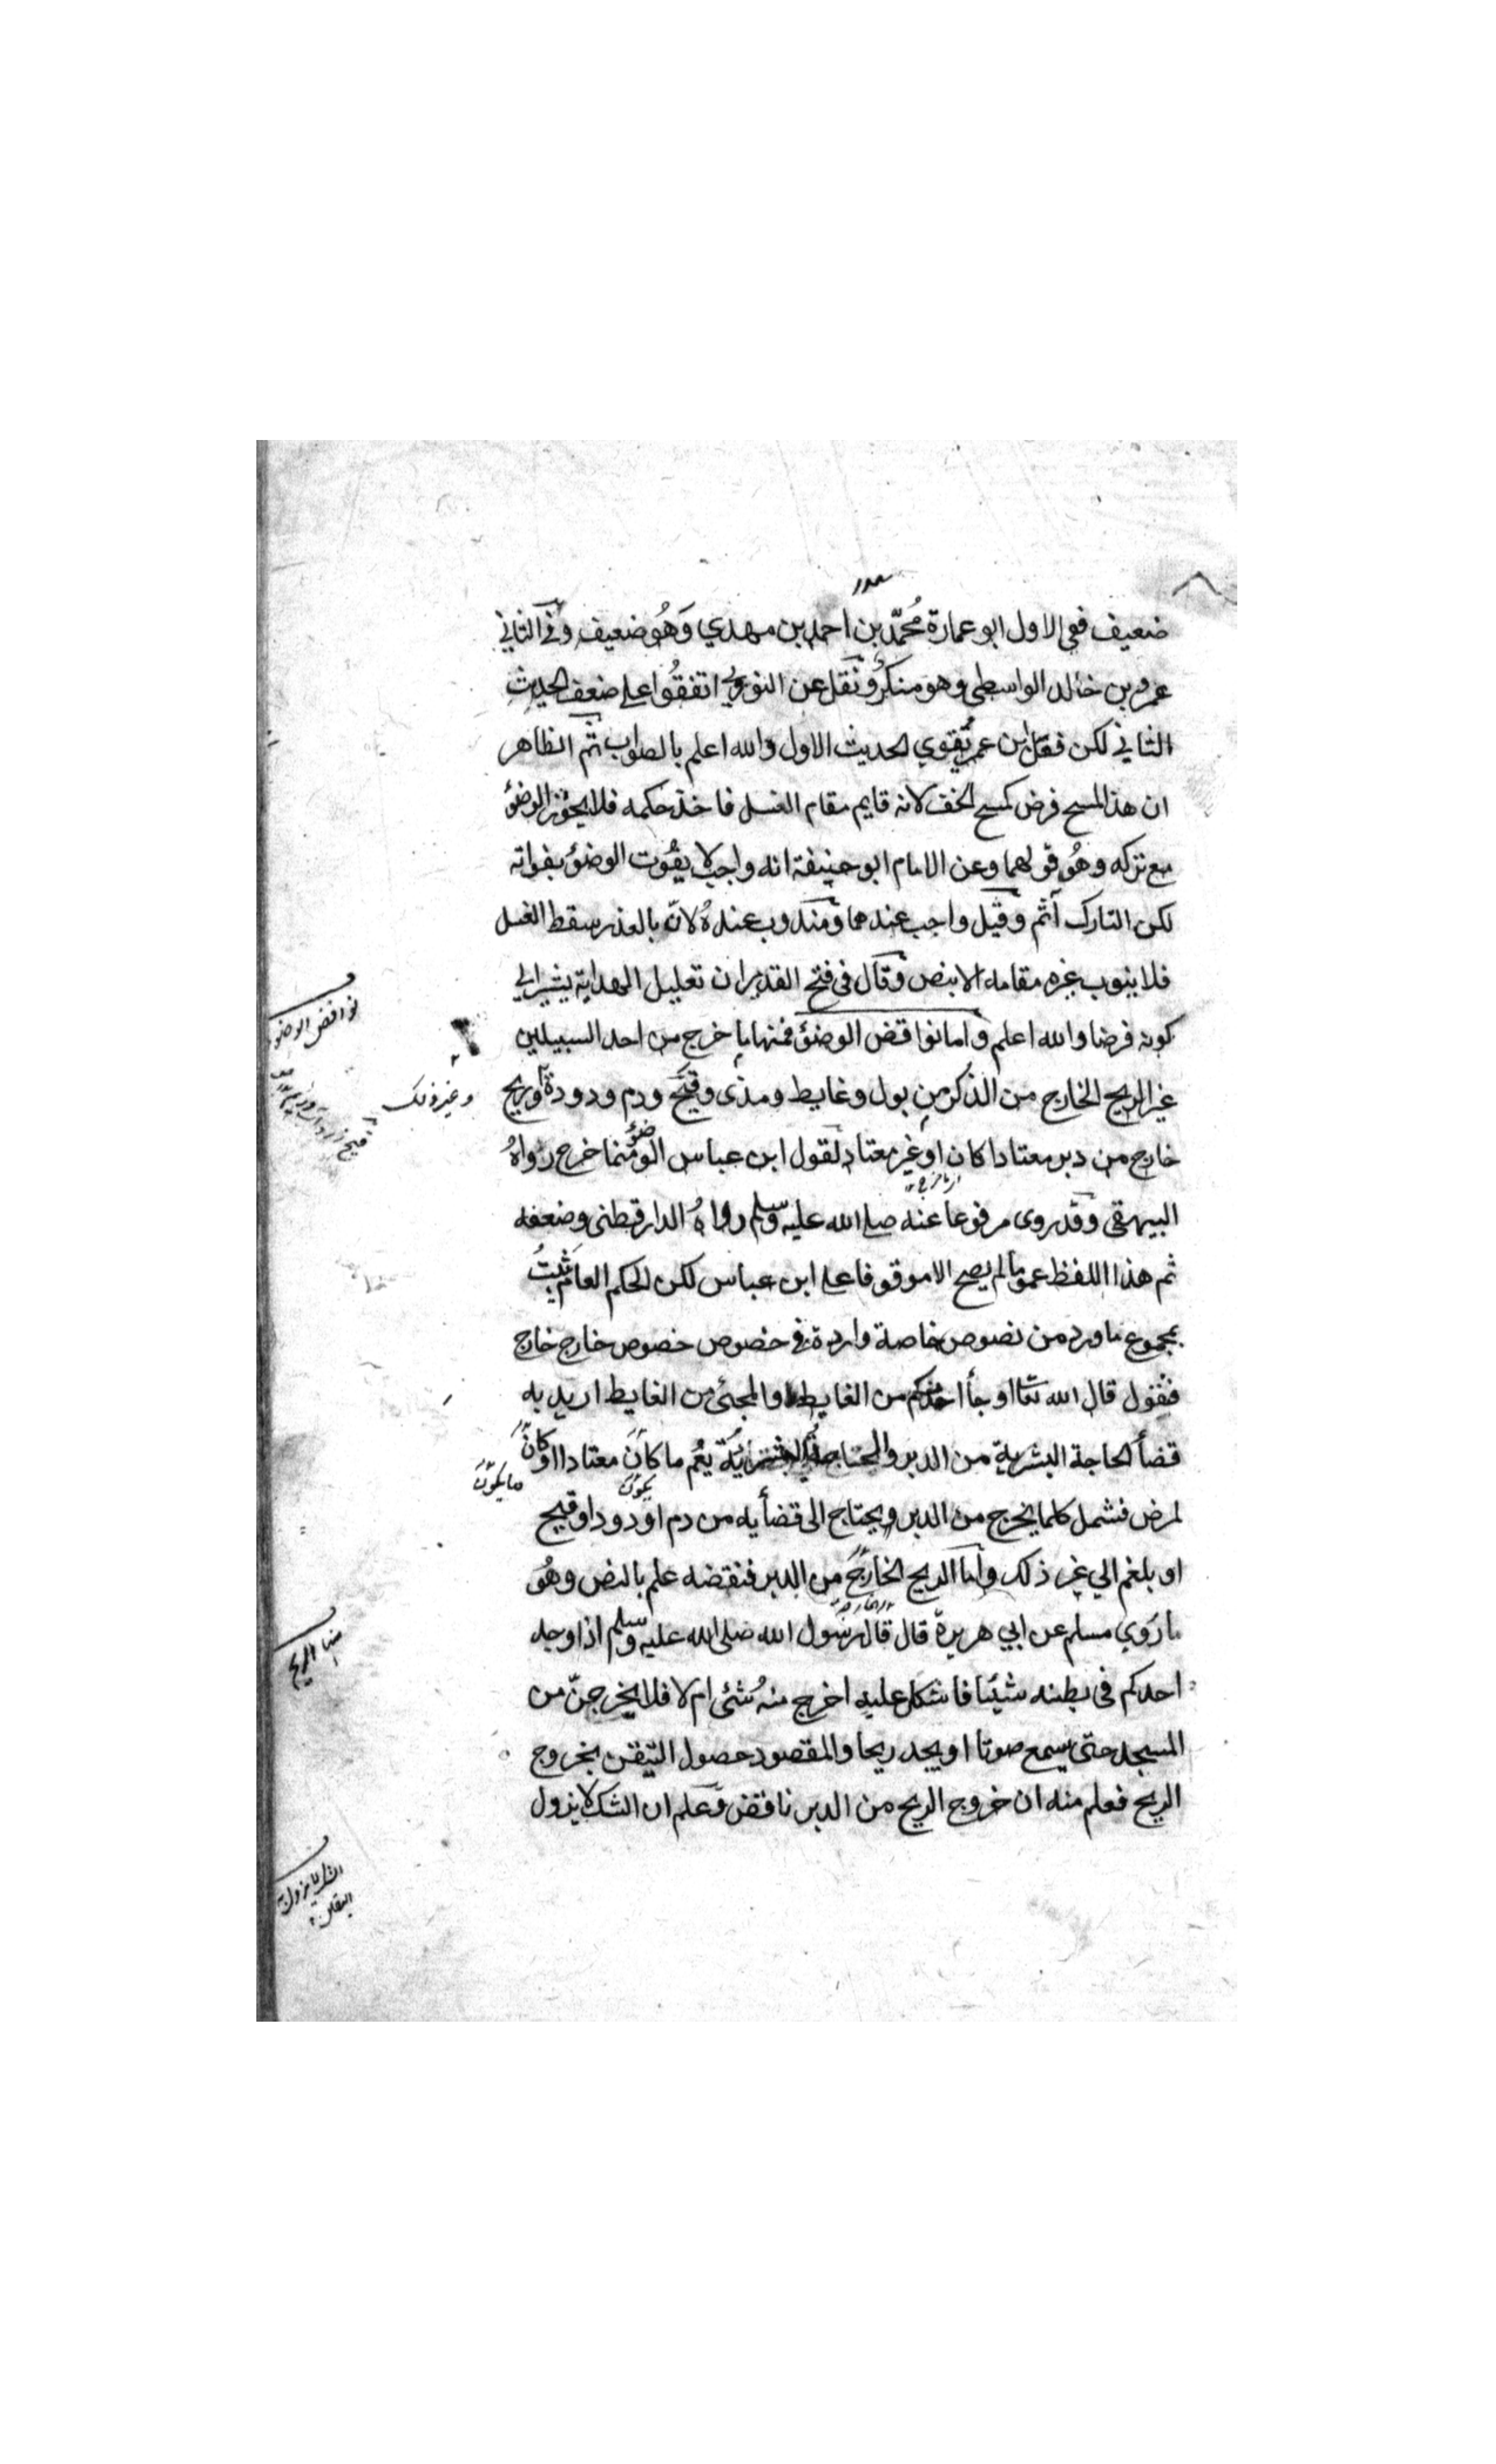 ضعيف ففي الاول ابو عمارة مُحمّد بن احمد بن مهدي وَهُو ضعيف وفي الثاني
عمرو بن خالد الواسطي وهو منكر ونقل عن النووي اتفقُوا على ضعف الحديث
الثاني لكن فعل ابن عمر يُقوي الحديث الاول والله اعلم بالصواب ثم الظاهر
ان هذا المسح فرض كمسح الخف لانه قايم مقام الغسل فاخذ حكمه فلا يجوز الوضؤ
مع تركه وهُو قولهما وعن الامام ابو حنيفة انه واجب لا يفُوت الوضؤ بفواته
لكن التارك آثم وقيل واجب عندهما ومندوب عندهُ لانّ بالعذر سقط الغسل
فلا ينوب غيره مقامه الا بنص وقال في فتح القدير ان تعليل الهداية يشير الي
كونه فرضا والله اعلم واما نواقض الوضؤ فمنها ما خرج من احد السبيلين
غير الريح الخارج من الذكر من بول وغايط ومذى وقيح ودم ودودة او ريح
وغير ذلك
نواقض الوضو
خارج من دبر معتادا كان او غير معتاد لقول ابن عباس الوضؤ مما خرج رواهُ
البيهقي وقد روى مرفوعا عنه صلى الله عليه وسلم رواهُ الدارقطنى وضعفه
ثم هذا اللفظ عموما لم يصح الا موقوفا على ابن عباس لكن الحكم العام ثبتُ
بمجموع ما ورد من نصوص خاصة واردة في خصوص خصوص خارج خارج
فنقول قال الله تعا او جأ احد منكم من الغايط والمجئ من الغايط اريد به
قضأ الحاجة البشرية من الدبر والحتاجة البشرية يعُم ما كانَ معتادا او كانَ
ما يكون
لمرض فشمل كلما يخرج من الدبر ويحتاج الى قضأيه من دم او دود او قيح
يكون
او بلغم الي غير ذلك واما الريح الخارج من الدبر فنقضه علم بالنص وهُو
ما رَوي مسلم عن ابي هريرة قال قال رسول الله صلى الله عليه وسلم اذا وجد
منها الريح
احدكم في بطنه شيئا فاشكل عليه اخرج منهُ شئ ام لا فلا يخرجنّ من
المسجد حتى يسمع صوتا او يجد ريحا والمقصود حصول التيقن بخروج
الريح فعلم منه ان خروج الريح من الدبر ناقض وعلم ان الشك لا يزول
الشك لا يزول به
اليقين